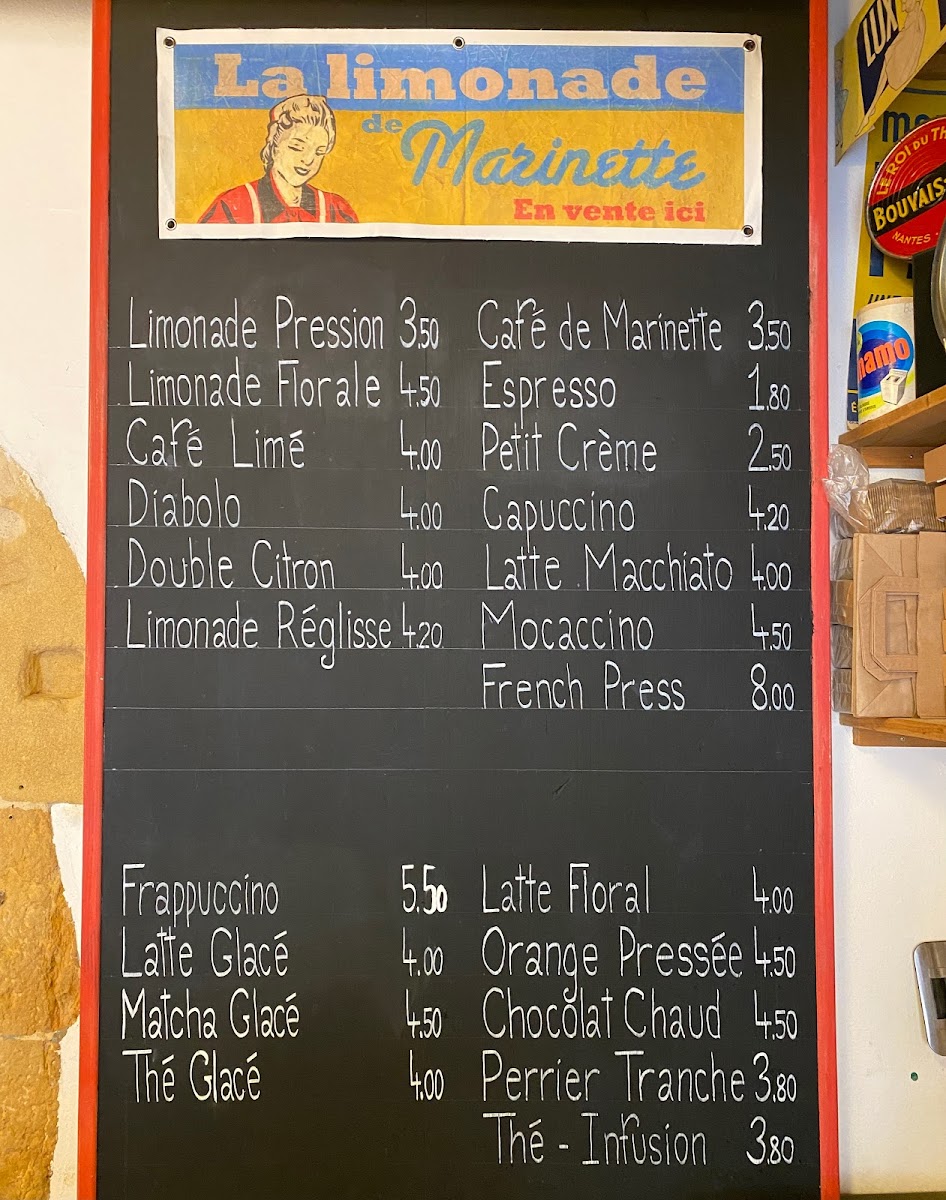 La limonade
de Marinette
En vente ici
Limonade Pression 3.50
Limonade Florale 4.50
Café Limé 4.00
Diabolo 4.00
Double Citron 4.00
Limonade Réglisse 4.20
Café de Marinette 3.50
Espresso 1.80
Petit Crème 2.50
Capuccino 4.20
Latte Macchiato 4.00
Mocaccino 4.50
French Press 8.00
Frappuccino 5.50
Latte Glacé 4.00
Matcha Glacé 4.50
Thé Glacé 4.00
Latte Floral 4.00
Orange Pressée 4.50
Chocolat Chaud 4.50
Perrier Tranche 3.80
Thé - Infusion 3.80
LUX
LE ROI DU
BOUVAIS
NANTES